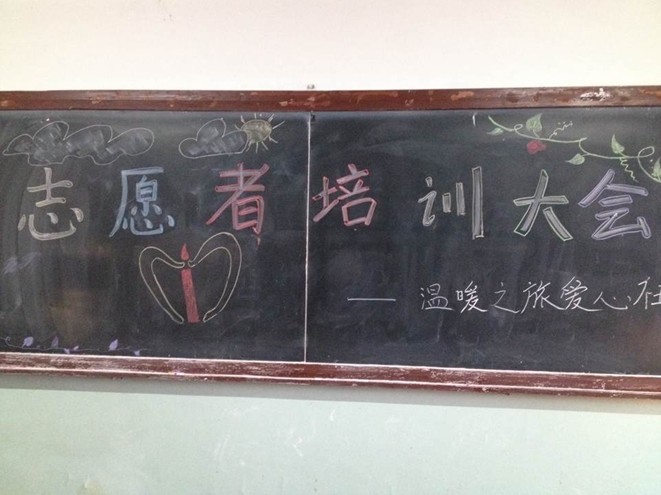 志愿者培训大会
——温暖之旅爱心社